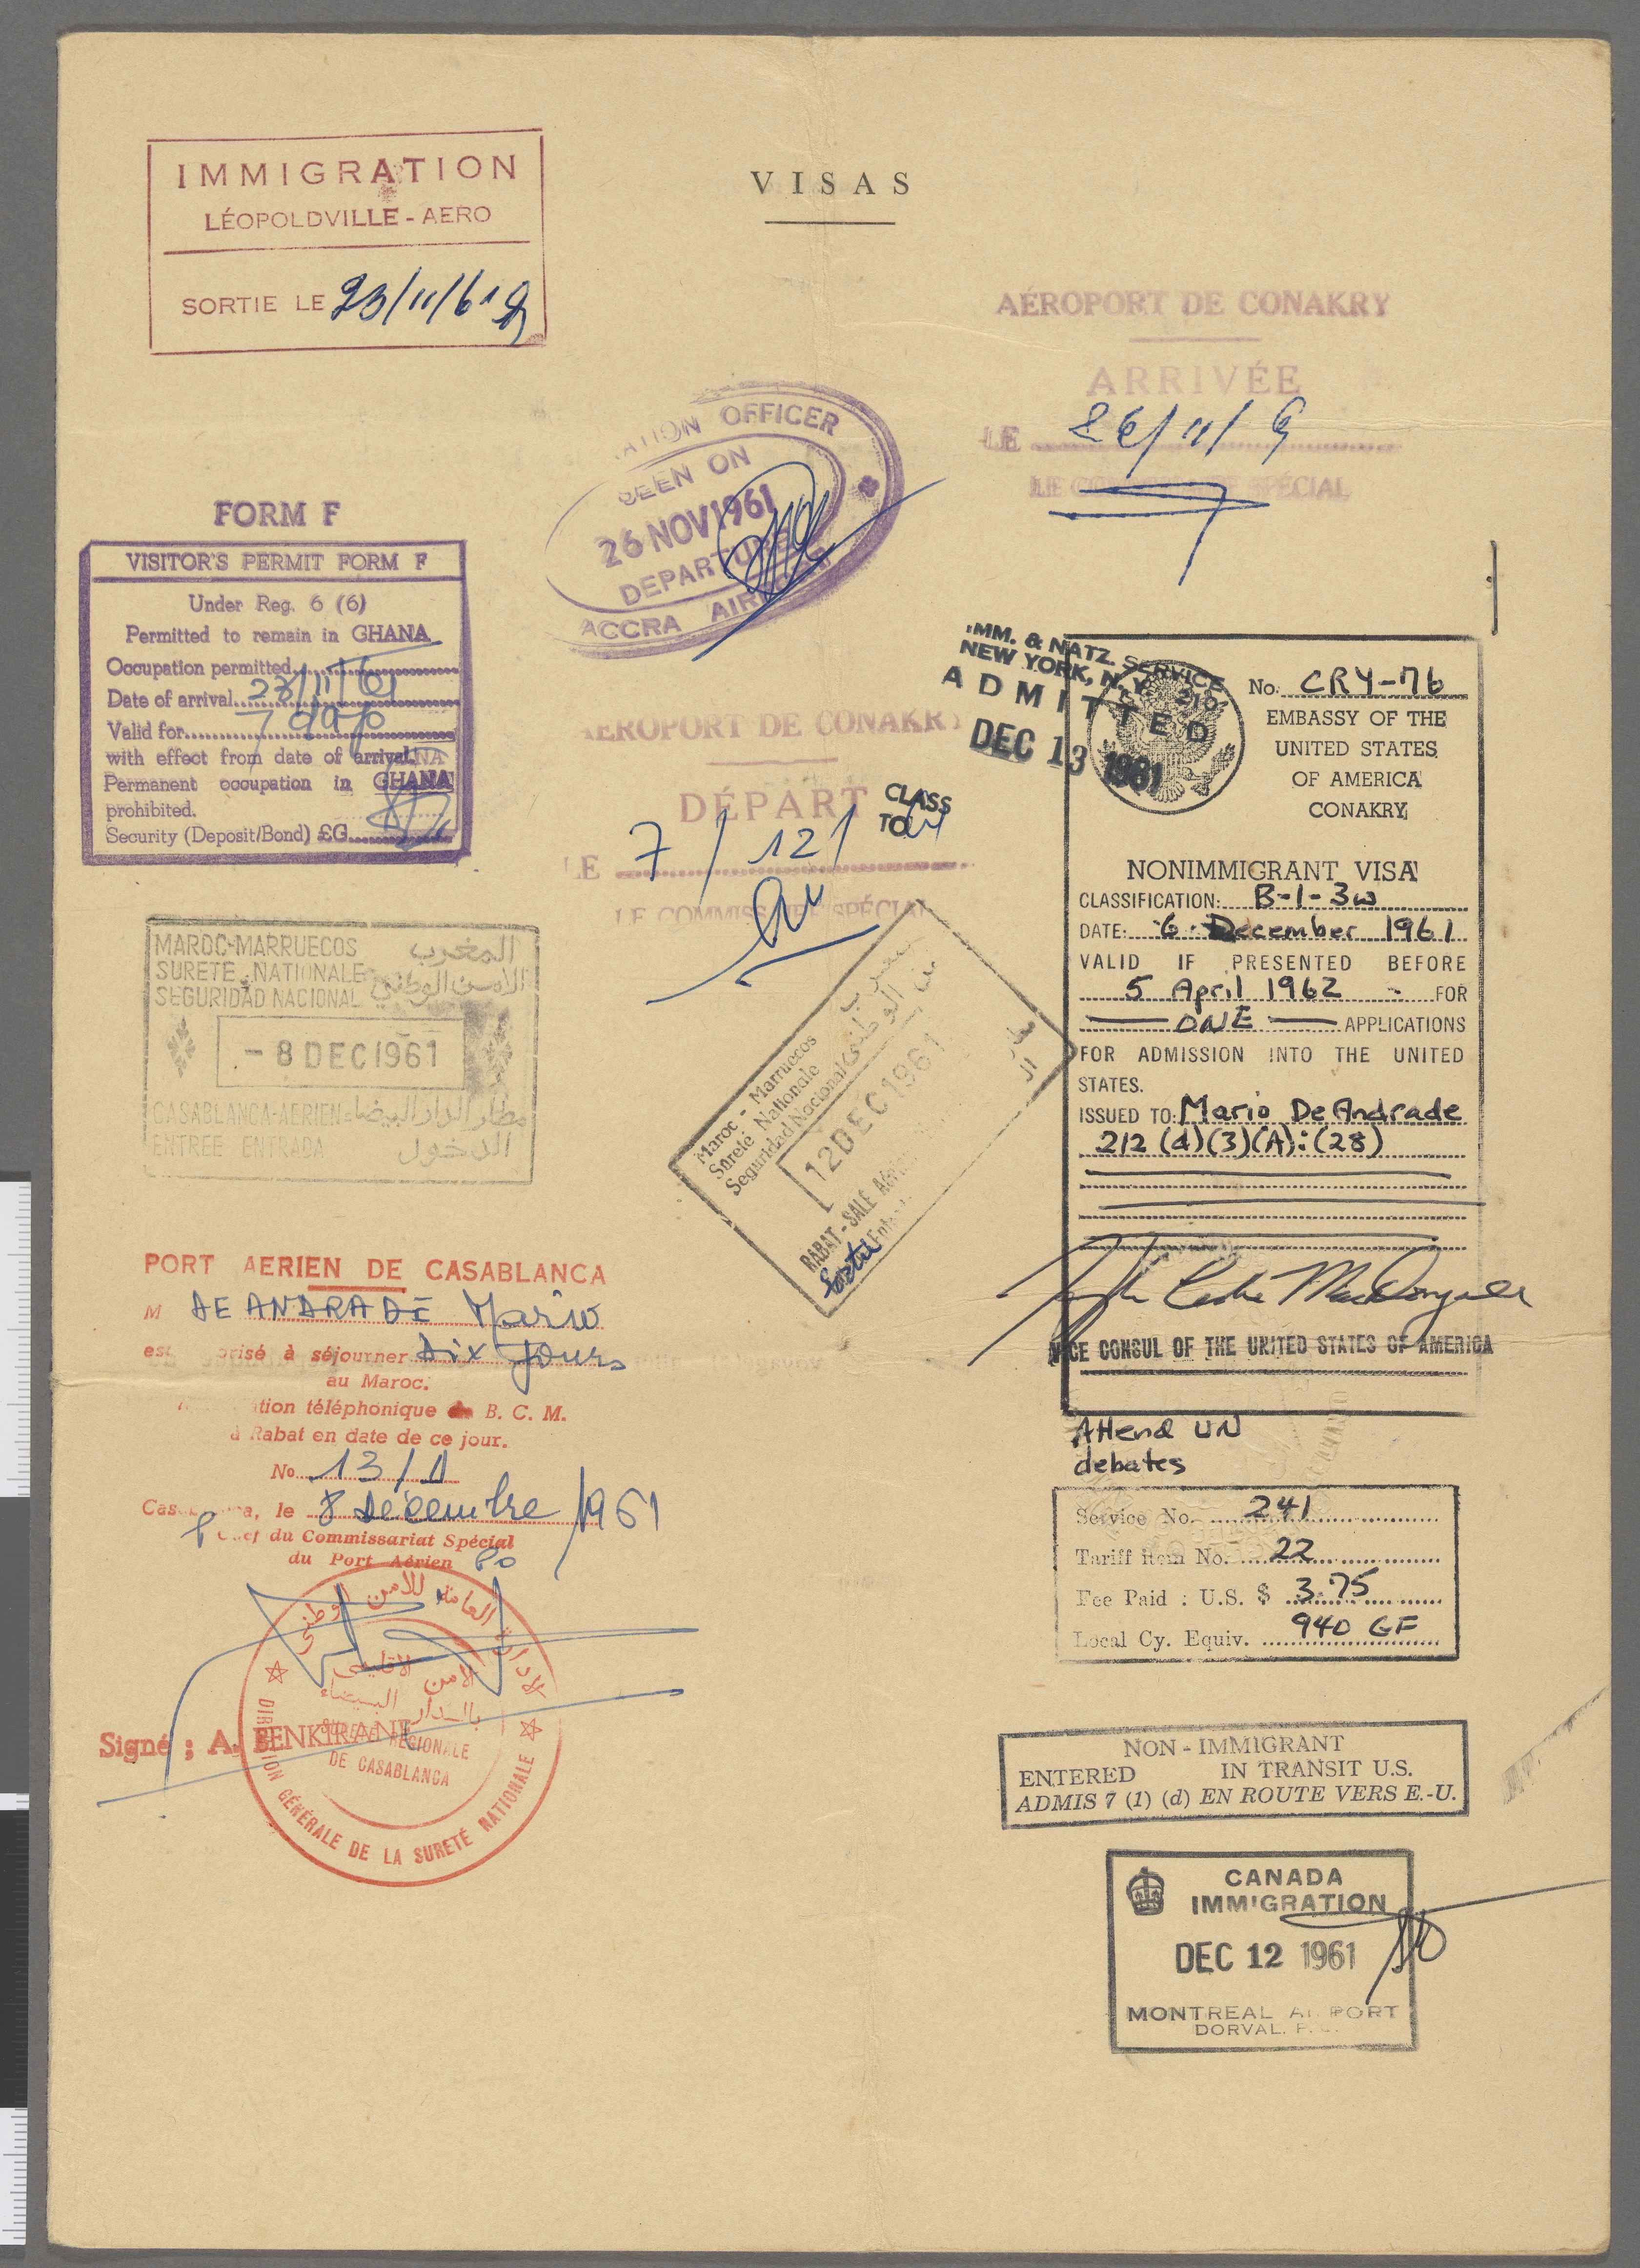 VISAS
IMMIGRATION
LÉOPOLDVILLE - AERO
SORTIE LE 23/11/61
AÉROPORT DE CONAKRY
ARRIVÉE
LE 26/11/6
LE SPÉCIAL
OFFICER
SEEN ON
26 NOV 1961
DEPARTURE
ACCRA AIRPORT
FORM F
VISITOR'S PERMIT FORM F
Under Reg. 6 (6)
Permitted to remain in GHANA
Occupation permitted
Date of arrival 23/11/61
Valid for 7 days
with effect from date of arrival.
Permanent occupation in GHANA
prohibited.
Security (Deposit/Bond) £G
AEROPORT DE CONAKRY
DÉPART
LE 7/12/
LE COMMISSAIRE SPÉCIAL
CLASS
TO
IMM. & NATZ. SERVICE
NEW YORK, N.Y. 210
ADMITTED
DEC 13 1961
No. CRY-76
EMBASSY OF THE
UNITED STATES
OF AMERICA
CONAKRY
NONIMMIGRANT VISA
CLASSIFICATION: B-1-3w
DATE: 6 December 1961
VALID IF PRESENTED BEFORE
5 April 1962 - FOR
ONE APPLICATIONS
FOR ADMISSION INTO THE UNITED
STATES.
ISSUED TO: Mario De Andrade
212 (d)(3)(A):(28)
VICE CONSUL OF THE UNITED STATES OF AMERICA
Attend UN
debates
Service No. 241
Tariff Item No. 22
Fee Paid : U.S. $ 3.75
Local Cy. Equiv. 940 GF
MAROC-MARRUECOS المغرب
SURETE NATIONALE الامن الوطني
SEGURIDAD NACIONAL
- 8 DEC 1961
CASABLANCA-AERIEN مطار الدار البيضاء
ENTREE ENTRADA الدخول
Maroc - Marruecos
Sûreté Nationale
Seguridad Nacional الوطني
12 DEC 1961
RABAT-SALE
PORT AERIEN DE CASABLANCA
M DE ANDRADE Mario
est orisé à séjourner dix jours
au Maroc.
tion téléphonique B. C. M.
à Rabat en date de ce jour.
No 13/
le 8 Décembre 1961
du Commissariat Spécial
du Port Aérien
الادارة العامة للامن الوطني
الامن الاقليمي
بالدار البيضاء
SURETÉ RÉGIONALE
DE CASABLANCA
DIRECTION GÉNÉRALE DE LA SURETÉ NATIONALE
Signé : A. BENKIRANE
NON - IMMIGRANT
ENTERED IN TRANSIT U.S.
ADMIS 7 (1) (d) EN ROUTE VERS E.-U.
CANADA
IMMIGRATION
DEC 12 1961
MONTREAL AIRPORT
DORVAL. P.